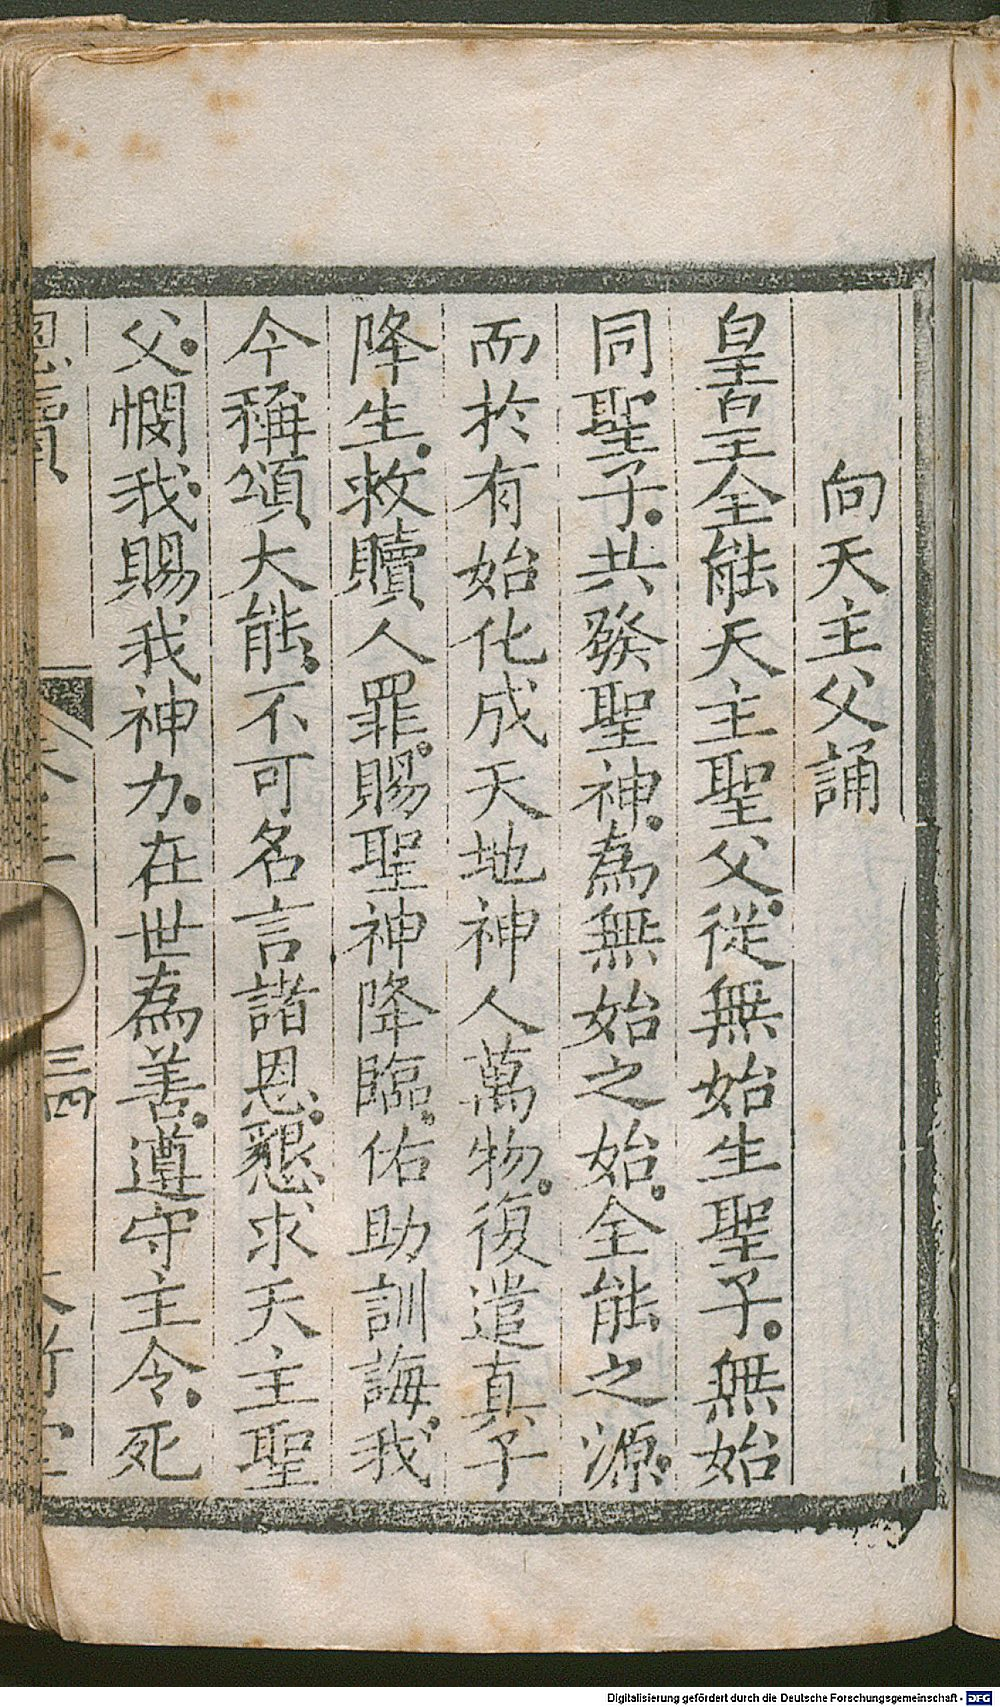 向天主父誦
皇皇全能天主聖父。從無始生聖子。無始
同聖子。共發聖神。為無始之始。全能之源。
而於有始化成天地神人萬物。復遣真子
降生。救贖人罪。賜聖神降臨。佑助訓誨。我
今稱頌大能。不可名言諸恩。懇求天主聖
父。憫我。賜我神力。在世為善。遵守主令。死
三四
Digitalisierung gefördert durch die Deutsche Forschungsgemeinschaft - DFG